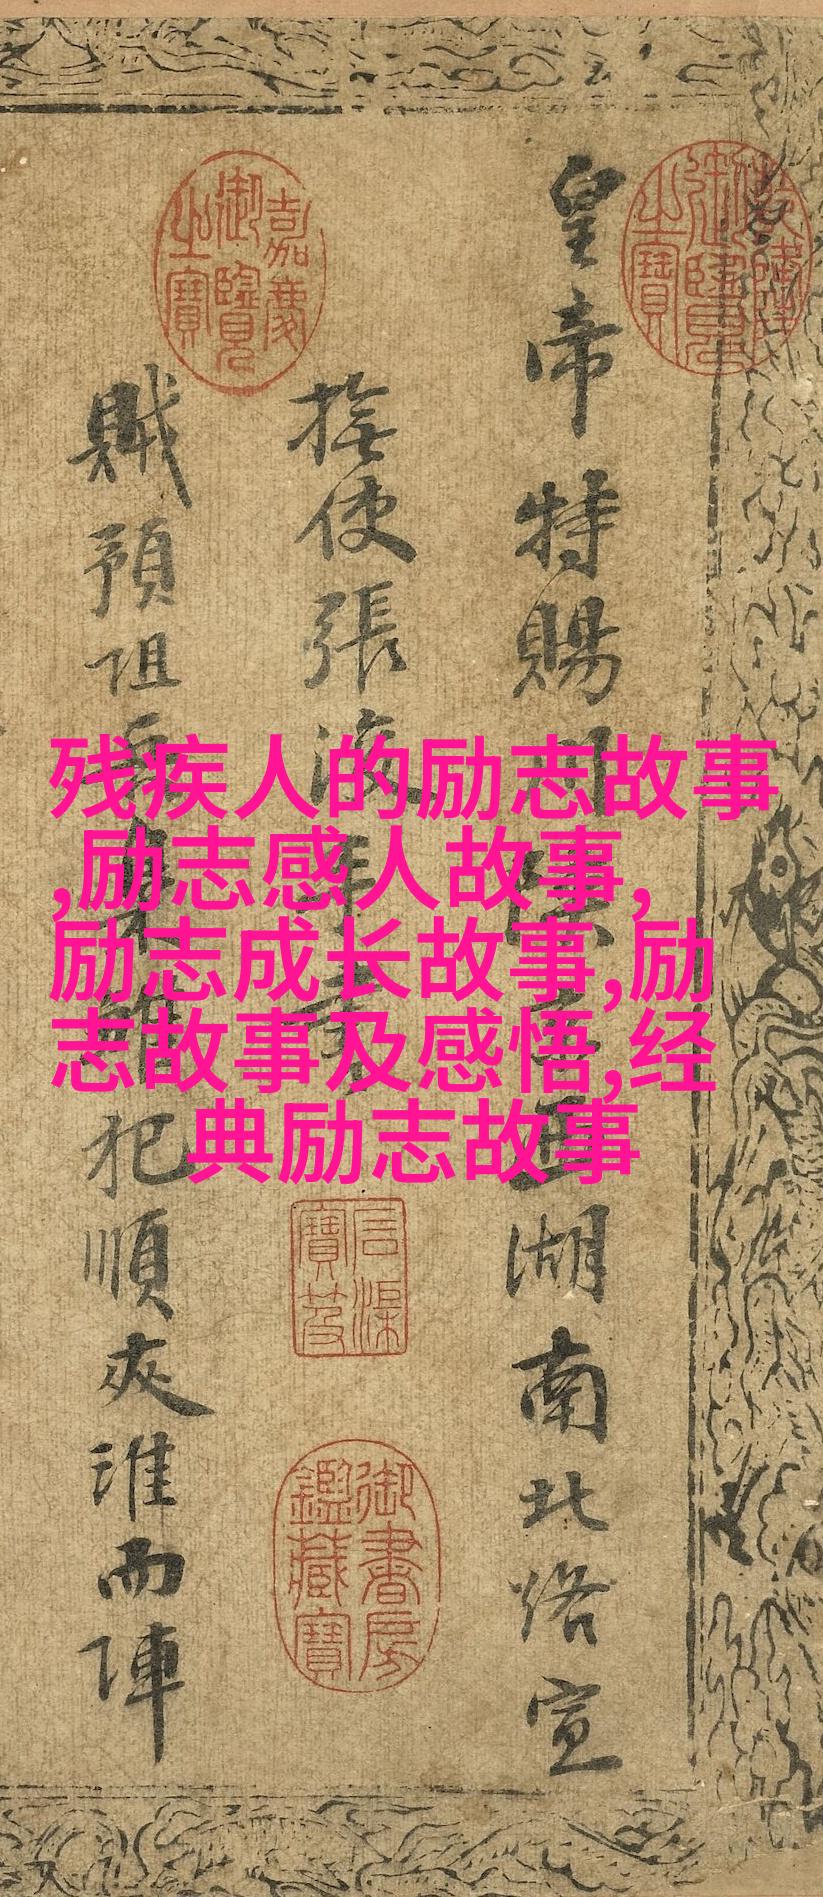 皇帝特賜湖南北路宣
撫使張浚
賊預阻兵犯順夾淮而陣
残疾人的励志故事
,励志感人故事,
励志成长故事,励
志故事及感悟,经
典励志故事
嘉慶御覽之寶
石渠寶笈
御書房鑑藏寶